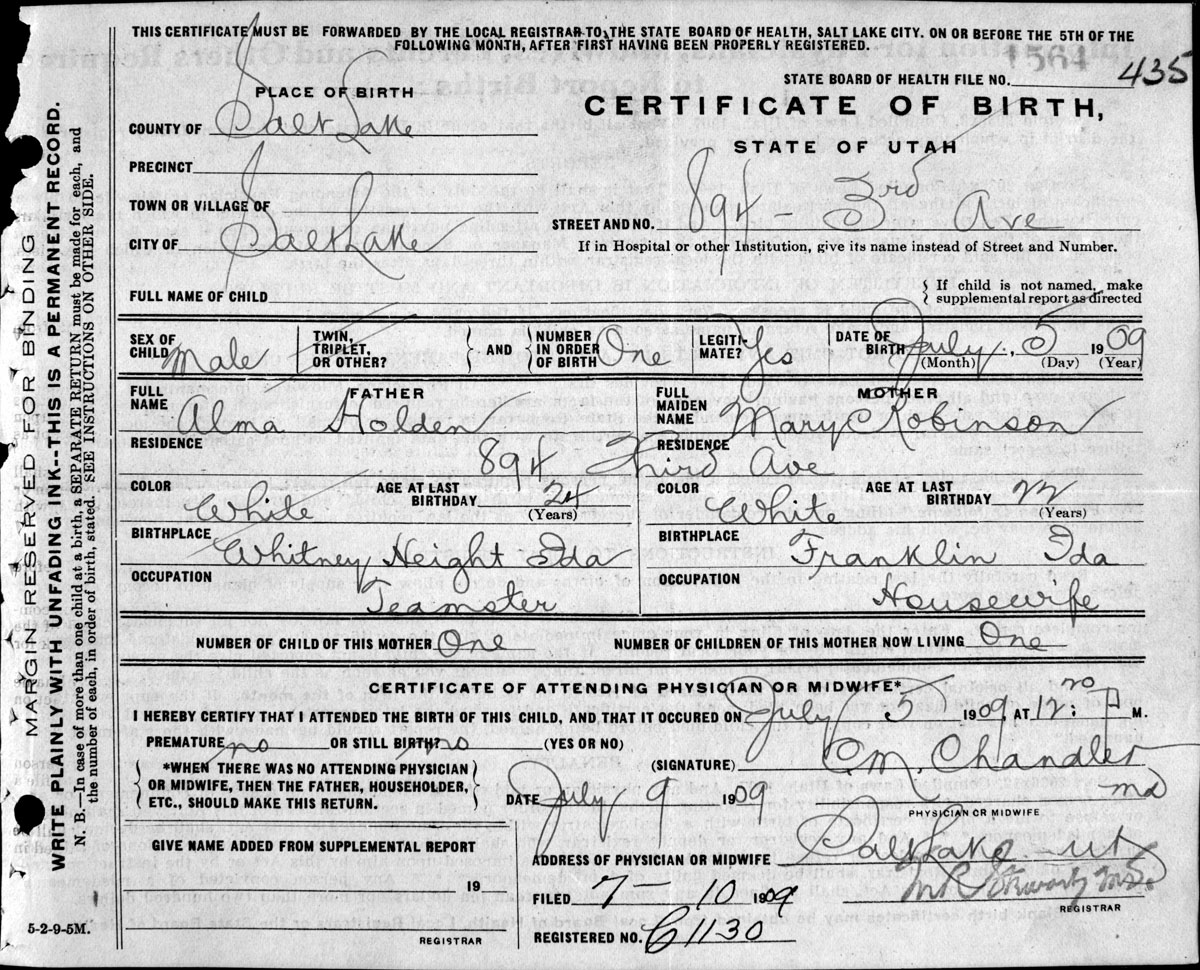 THIS CERTIFICATE MUST BE FORWARDED BY THE LOCAL REGISTRAR TO THE STATE BOARD OF HEALTH, SALT LAKE CITY. ON OR BEFORE THE 5TH OF THE
FOLLOWING MONTH, AFTER FIRST HAVING BEEN PROPERLY REGISTERED.
1564
STATE BOARD OF HEALTH FILE NO. 435
PLACE OF BIRTH
CERTIFICATE OF BIRTH,
COUNTY OF Salt Lake
STATE OF UTAH
PRECINCT
TOWN OR VILLAGE OF
STREET AND NO. 894 - 3rd Ave
CITY OF Salt Lake
If in Hospital or other Institution, give its name instead of Street and Number.
FULL NAME OF CHILD
{ If child is not named, make
supplemental report as directed
SEX OF CHILD Male
TWIN, TRIPLET, OR OTHER?
AND
NUMBER IN ORDER OF BIRTH One
LEGITIMATE? Yes
DATE OF BIRTH July, 5 1909
(Month) (Day) (Year)
FATHER
FULL NAME Alma Holden
MOTHER
FULL MAIDEN NAME Mary C Robinson
RESIDENCE
RESIDENCE
894 Third Ave
COLOR White
AGE AT LAST BIRTHDAY 24 (Years)
COLOR White
AGE AT LAST BIRTHDAY 22 (Years)
BIRTHPLACE Whitney Height Ida
BIRTHPLACE Franklin Ida
OCCUPATION Teamster
OCCUPATION Housewife
NUMBER OF CHILD OF THIS MOTHER One
NUMBER OF CHILDREN OF THIS MOTHER NOW LIVING One
CERTIFICATE OF ATTENDING PHYSICIAN OR MIDWIFE*
I HEREBY CERTIFY THAT I ATTENDED THE BIRTH OF THIS CHILD, AND THAT IT OCCURED ON July 5 1909, AT 12: M.
PREMATURE no OR STILL BIRTH no (YES OR NO)
{ *WHEN THERE WAS NO ATTENDING PHYSICIAN
OR MIDWIFE, THEN THE FATHER, HOUSEHOLDER,
ETC., SHOULD MAKE THIS RETURN. }
(SIGNATURE) C. M. Chandler md
DATE July 9 1909
PHYSICIAN OR MIDWIFE
GIVE NAME ADDED FROM SUPPLEMENTAL REPORT
ADDRESS OF PHYSICIAN OR MIDWIFE Salt Lake ut
19
FILED 7-10 1909
REGISTRAR
REGISTRAR
REGISTERED NO. C1130
5-2-9-5M.
MARGIN RESERVED FOR BINDING
WRITE PLAINLY WITH UNFADING INK--THIS IS A PERMANENT RECORD.
N. B.—In case of more than one child at a birth, a SEPARATE RETURN must be made for each, and
the number of each, in order of birth, stated. SEE INSTRUCTIONS ON OTHER SIDE.